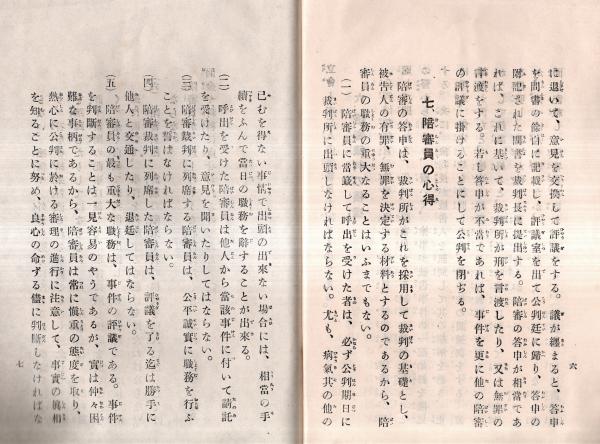 に退いて、意見を交換して評議をする。議が纏まると、答申
を問書の餘白に記載し、評議室を出て公判廷に歸り、答申の
附記された問書を裁判長に提出する。陪審の答申が相當であ
れば、これに基いて、裁判所が刑を言渡したり、又は無罪の
言渡をする。若し答申が不當であれば、事件を更に他の陪審
の評議に掛けることにして公判を閉ぢる。
七、陪審員の心得
陪審の答申は、裁判所がこれを採用して裁判の基礎とし、
被告人の有罪、無罪を決定する材料とするのであるから、陪
審員の職務の重大なることはいふまでもない。
(一) 陪審員に當籤して呼出を受けた者は、必ず公判期日に
裁判所に出頭しなければならない。尤も、病氣其の他の
六
已むを得ない事情で出頭の出來ない場合には、相當の手
續をふんで當日の職務を辭することが出來る。
(二) 呼出を受けた陪審員は他人から當該事件に付いて請託
を受けたり、意見を聞いたりしてはならない。
(三) 陪審裁判に列席する陪審員は、公平誠實に職務を行ふ
ことを誓はなければならない。
(四) 陪審裁判に列席した陪審員は、評議を了る迄は勝手に
他人と交通したり、退廷してはならない。
(五) 陪審員の最も重大な職務は、事件の評議である。事件
を判斷することは一見容易のやうであるが、實は仲々困
難な事柄であるから、陪審員は常に愼重の態度を取り、
熱心に公判に於ける審理の進行に注意して、事實の眞相
を知ることに努め、良心の命ずる儘に判斷しなければな
七